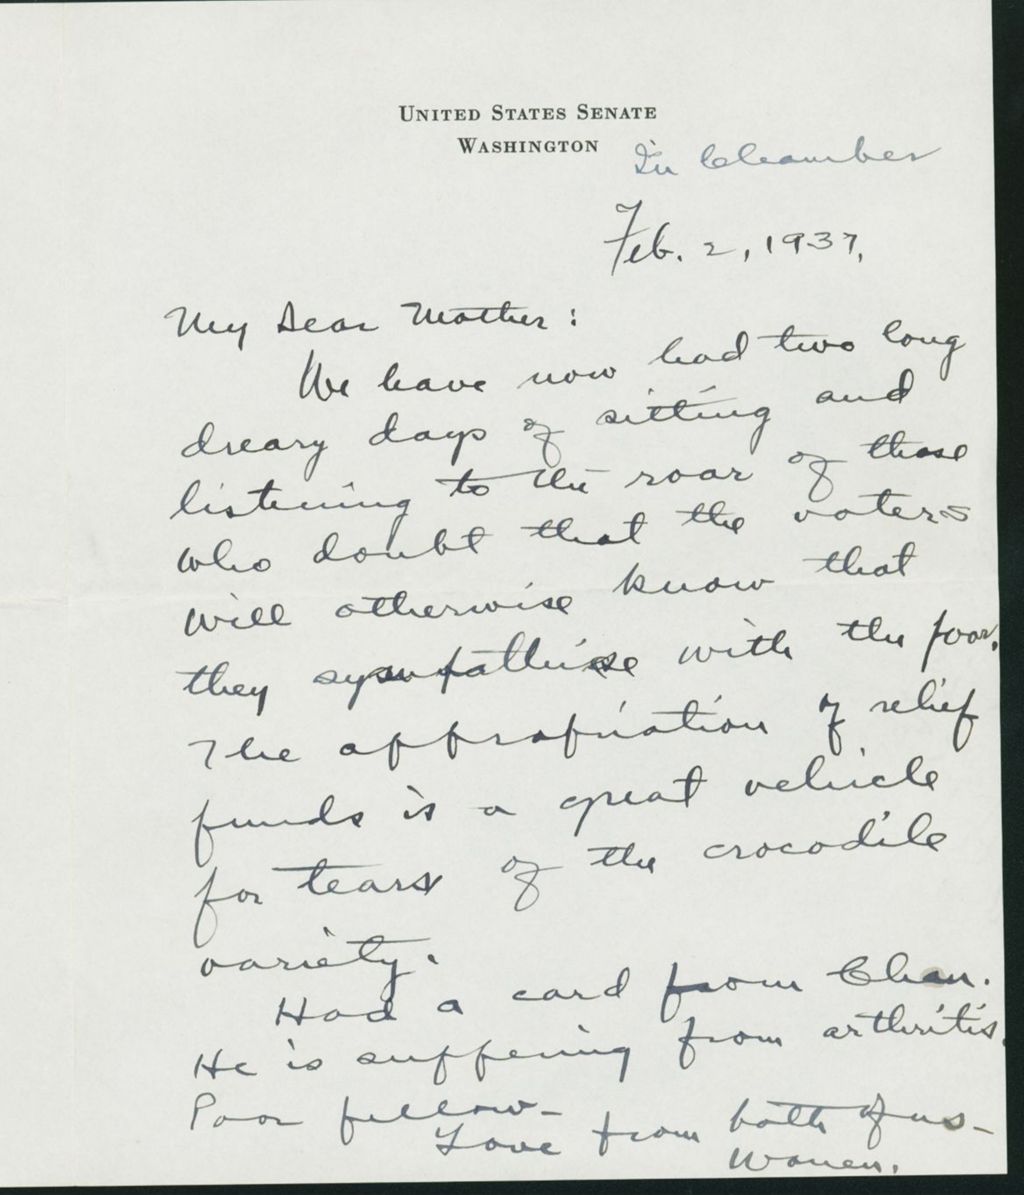 UNITED STATES SENATE
WASHINGTON
In Chamber
Feb. 2, 1937.
My Dear Mother:
We have now had two long
dreary days of sitting and
listening to the roar of those
who doubt that the voters
will otherwise know that
they sympathise with the poor.
The appropriation of relief
funds is a great vehicle
for tears of the crocodile
variety.
Had a card from Chan.
He is suffering from arthritis.
Poor fellow-
Love from both of us-
Warren.